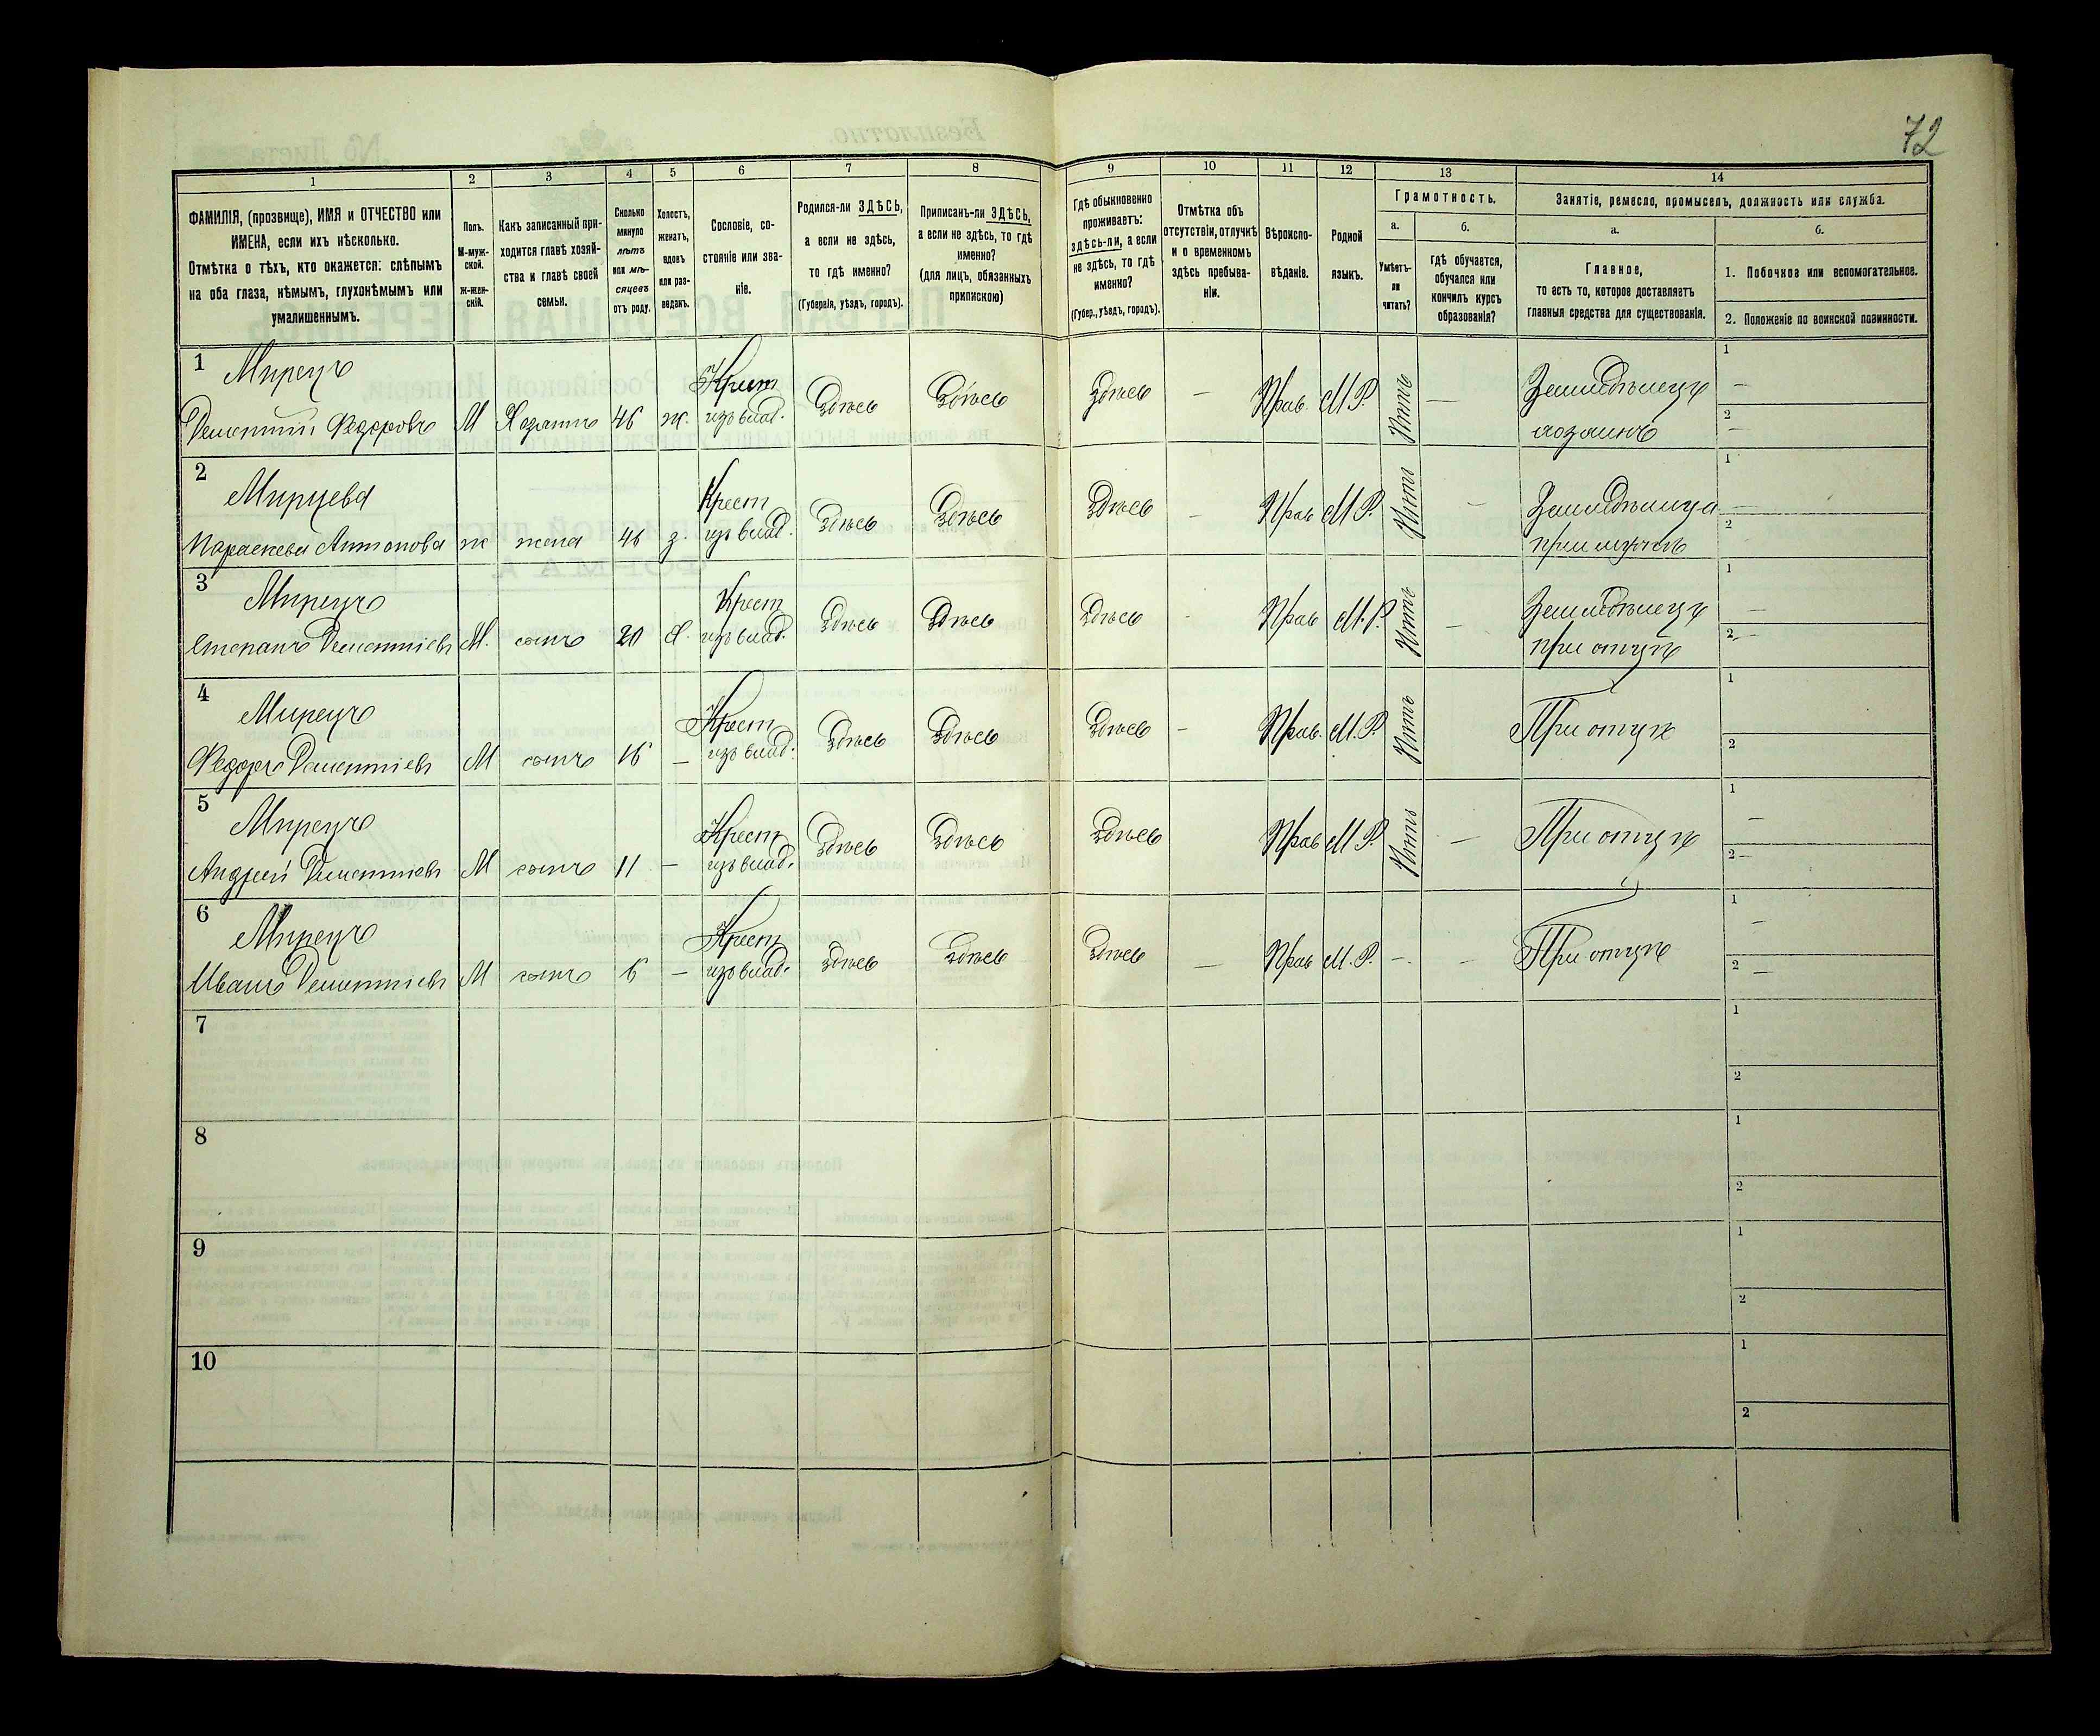 72
1 2 3 4 5 6 7 8 9 10 11 12 13 14
ФАМИЛІЯ, (прозвище), ИМЯ и ОТЧЕСТВО или
ИМЕНА, если ихъ нѣсколько.
Отмѣтка о тѣхъ, кто окажется: слѣпымъ
на оба глаза, нѣмымъ, глухонѣмымъ или
умалишеннымъ.
Полъ.
М-муж-
ской.
ж-жен-
скій.
Какъ записанный при-
ходится главѣ хозяй-
ства и главѣ своей
семьи.
Сколько
минуло
лѣтъ
или мѣ-
сяцевъ
отъ роду.
Холостъ,
женатъ,
вдовъ
или раз-
веденъ.
Сословіе, со-
стояніе или зва-
ніе.
Родился-ли ЗДѢСЬ,
а если не здѣсь,
то гдѣ именно?
(Губернія, уѣздъ, городъ).
Приписанъ-ли ЗДѢСЬ,
а если не здѣсь, то гдѣ
именно?
(для лицъ, обязанныхъ
припискою)
Гдѣ обыкновенно
проживаетъ:
здѣсь-ли, а если
не здѣсь, то гдѣ
именно?
(Губер., уѣздъ, городъ).
Отмѣтка объ
отсутствіи, отлучкѣ
и о временномъ
здѣсь пребыва-
ніи.
Вѣроиспо-
вѣданіе.
Родной
языкъ.
Грамотность.
а.
Умѣетъ-
ли
читать?
б.
гдѣ обучается,
обучался или
кончилъ курсъ
образованія?
Занятіе, ремесло, промыселъ, должность или служба.
а.
Главное,
то есть то, которое доставляетъ
главныя средства для существованія.
б.
1. Побочное или вспомогательное.
2. Положеніе по воинской повинности.
1 Мирецъ Крест Земледѣлецъ 1 —
Дементий Федоровъ М Хозяинъ 46 ж. изъ влад. Здѣсь Здѣсь здѣсь — Прав. М.Р. Нѣтъ — хозяинъ 2 —
2 Мирцева Крест Земледѣлица 1 —
Параскева Антонова ж жена 46 з. изъ влад. Здѣсь Здѣсь Здѣсь — Прав М.Р. Нѣтъ — при мужѣ 2
3 Мирецъ Крест Земледѣлецъ 1 —
Степанъ Дементіевъ М. сынъ 20 х. изъ влад. Здѣсь Здѣсь Здѣсь - Прав М.Р. Нѣтъ — при отцѣ 2 —
4 Мирецъ Крест 1
Федоръ Дементіевъ М сынъ 16 — изъ влад. Здѣсь Здѣсь Здѣсь — Прав. М.Р. Нѣтъ При отцѣ 2
5 Мирецъ Крест 1 —
Андрей Дементіевъ М сынъ 11 — изъ влад. Здѣсь Здѣсь Здѣсь Прав М.Р. Нѣтъ — При отцѣ 2 —
6 Мирецъ Крест 1 —
Иванъ Дементіевъ М сынъ 6 — изъ влад. Здѣсь Здѣсь Здѣсь — Прав М.Р. — — При отцѣ 2 —
7 1
2
8 1
2
9 1
2
10 1
2